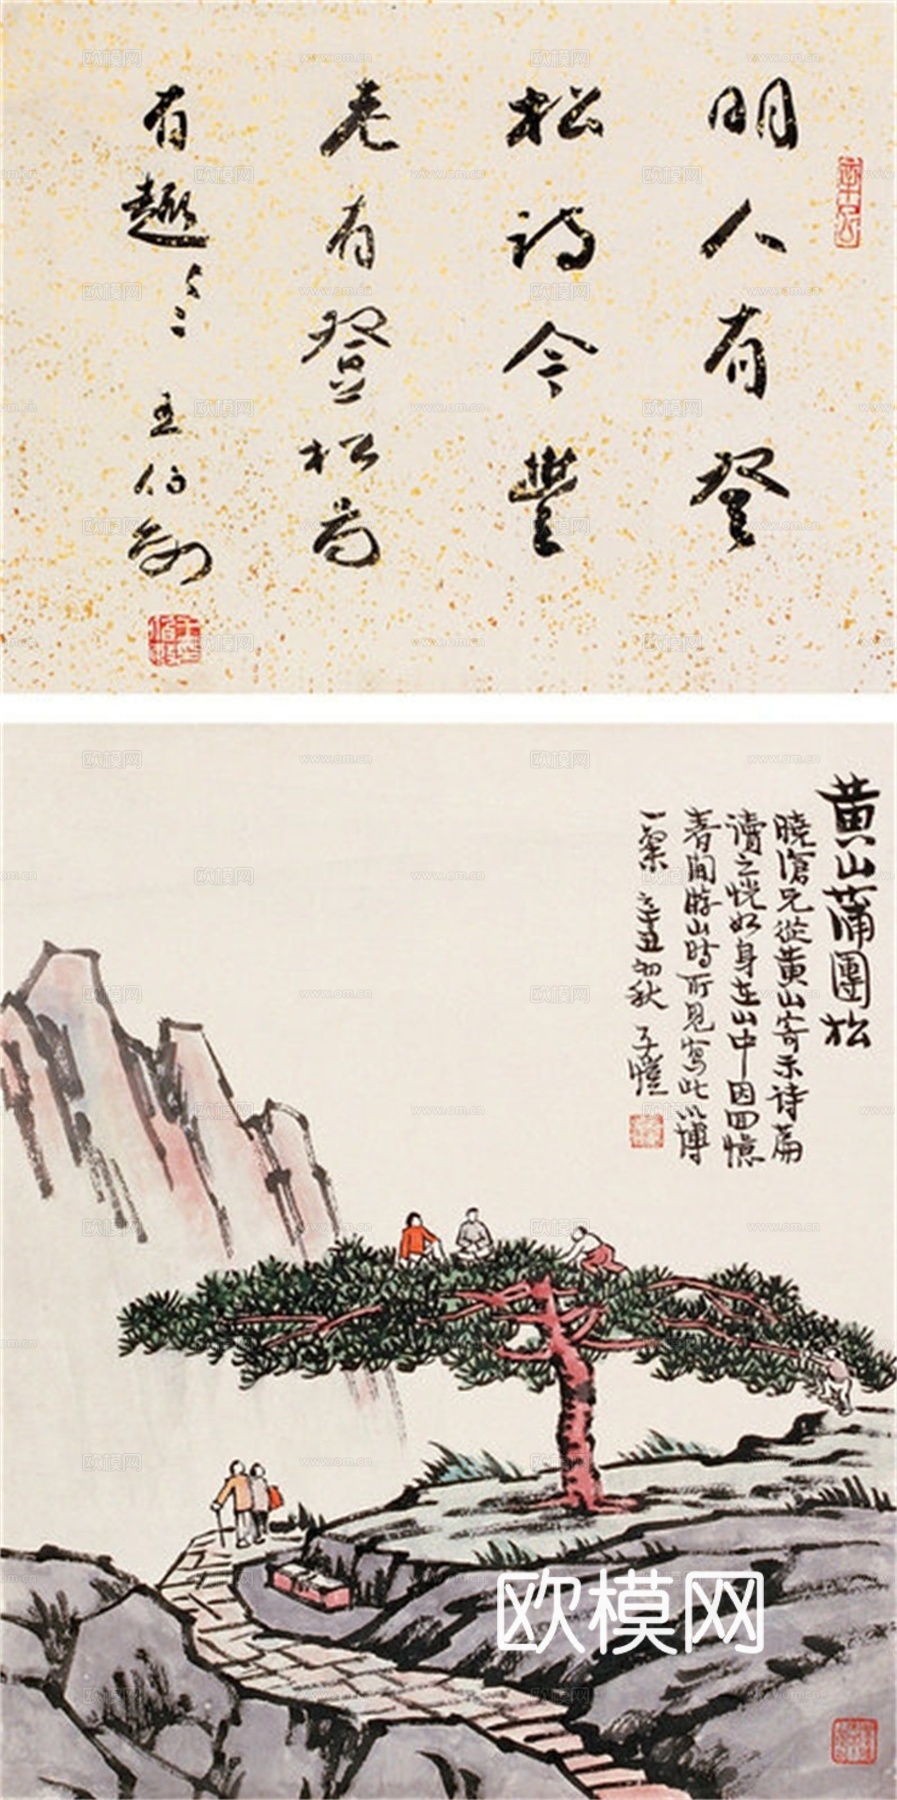 明人有登
松詩今豐
老有登松尚
有趣
王伯敏
黄山蒲團松
曉滄兄從黄山寄示诗篇
讀之恍如身在山中因回憶
春间游山時所見寫此以博
一粲 辛丑初秋 子愷
欧模网
www.om.cn